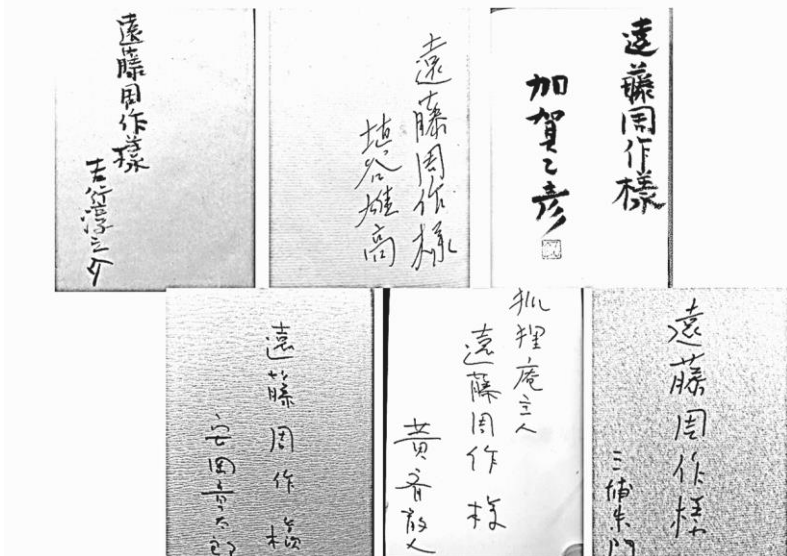 遠藤周作様
吉行淳之介
遠藤周作様
埴谷雄高
遠藤周作様
加賀乙彦
遠藤周作様
安岡章太郎
狐狸庵主人
遠藤周作様
黄斎散人
遠藤周作様
三浦朱門